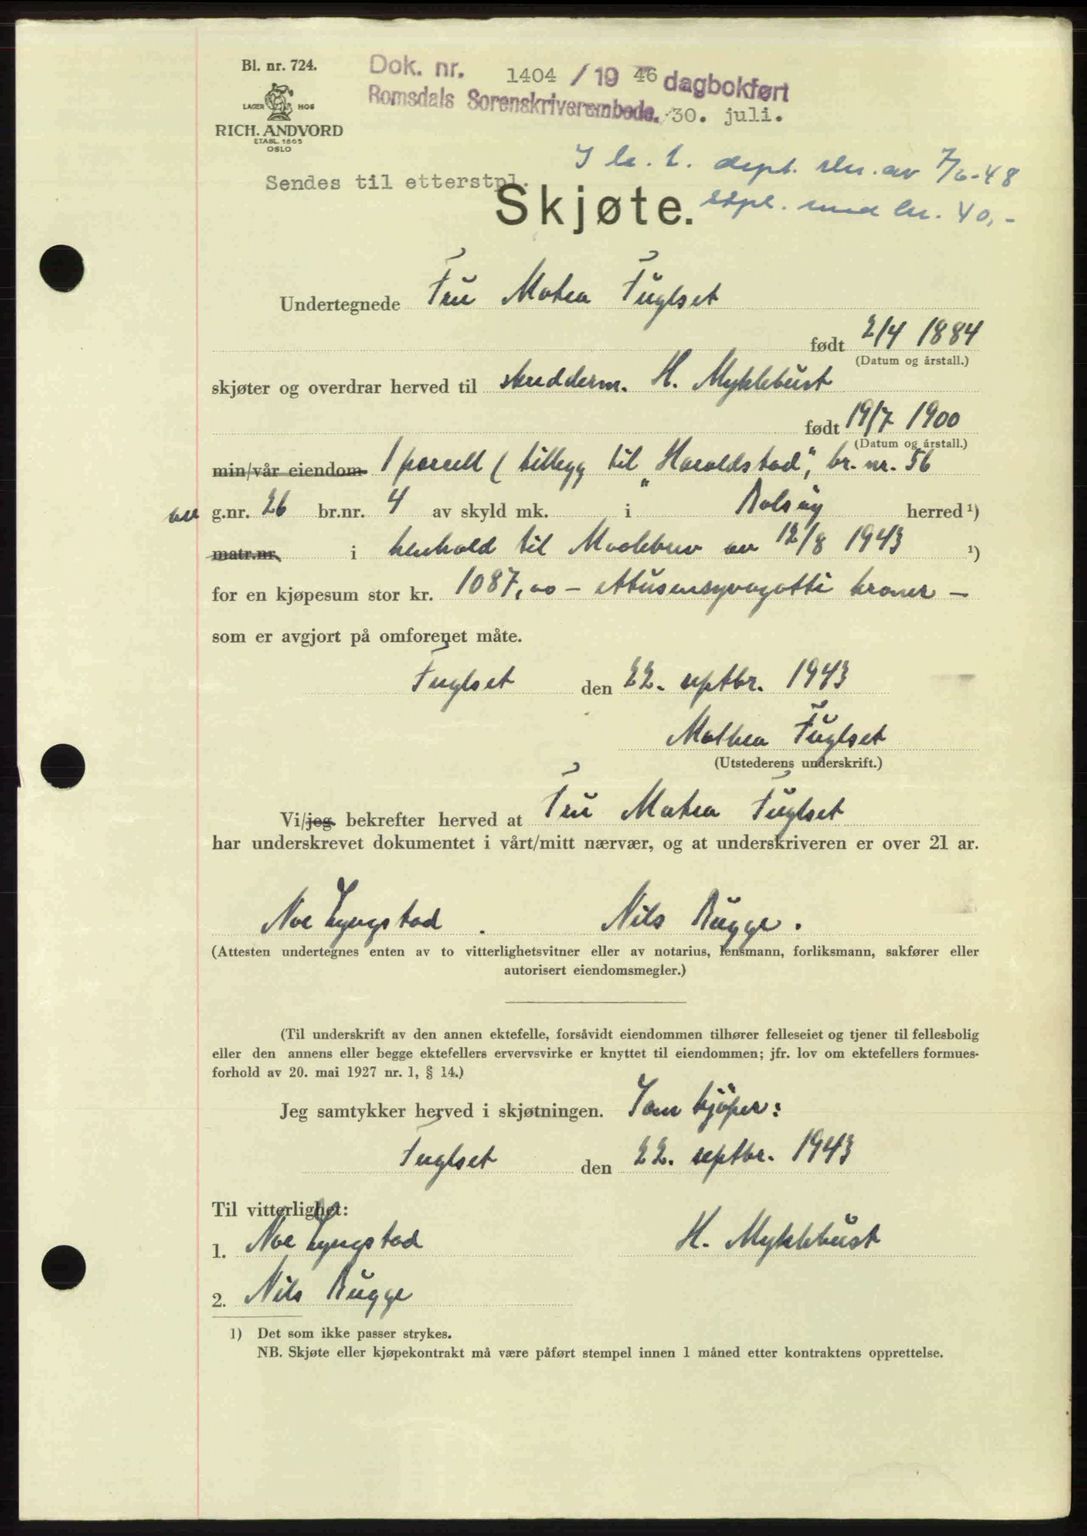 Bl. nr. 724.
LAGER HOS
RICH. ANDVORD
ETABL. 1865
OSLO
Dok. nr. 1404 / 19 46 dagbokført
Romsdals Sorenskriverembede. 30. juli.
dept. av 7/6-48
Sendes til etterstpl.
stpl. med kr. 40,-
Skjøte.
Undertegnede Fru Matea Fuglset
født 2/4 1884
(Datum og årstall.)
skjøter og overdrar herved til skredderm. H. Myklebust
født 19/7 1900
(Datum og årstall.)
min/vår eiendom 1 parcell ( tillegg til "Haraldstad", br. nr. 56
av g.nr. 26 br.nr. 4 av skyld mk. i Bolsøy herred ¹)
matr.nr. i henhold til Maalebrev av 12/8 1943 ¹)
for en kjøpesum stor kr. 1087,00 - ettusenogsyvogotti kroner -
som er avgjort på omforenet måte.
Fuglset den 22. septbr. 1943
Mathea Fuglset
(Utstederens underskrift.)
Vi/jeg bekrefter herved at Fru Matea Fuglset
har underskrevet dokumentet i vårt/mitt nærvær, og at underskriveren er over 21 år.
Lyngstad . Nils Bugge .
(Attesten undertegnes enten av to vitterlighetsvitner eller av notarius, lensmann, forliksmann, sakfører eller
autorisert eiendomsmegler.)
(Til underskrift av den annen ektefelle, forsåvidt eiendommen tilhører felleseiet og tjener til fellesbolig
eller den annens eller begge ektefellers ervervsvirke er knyttet til eiendommen; jfr. lov om ektefellers formues-
forhold av 20. mai 1927 nr. 1, § 14.)
Jeg samtykker herved i skjøtningen. Som kjöper:
Fuglset den 22. septbr. 1943
Til vitterlighet:
1. Lyngstad H. Myklebust
2. Nils Bugge
1) Det som ikke passer strykes.
NB. Skjøte eller kjøpekontrakt må være påført stempel innen 1 måned etter kontraktens opprettelse.